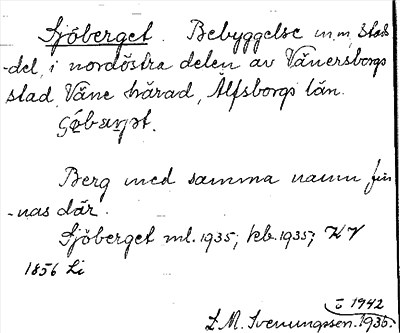 Sjöberget. Bebyggelse m.m., stads
-del, i nordöstra delen av Vänersborgs
stad, Väne härad, Älfsborgs län.
Berg med samma namn fin-
-nas där.
Sjöberget ml. 1935; hb. 1935; KV
1856 Li
1942
L.M. Svenungsson. 1935.